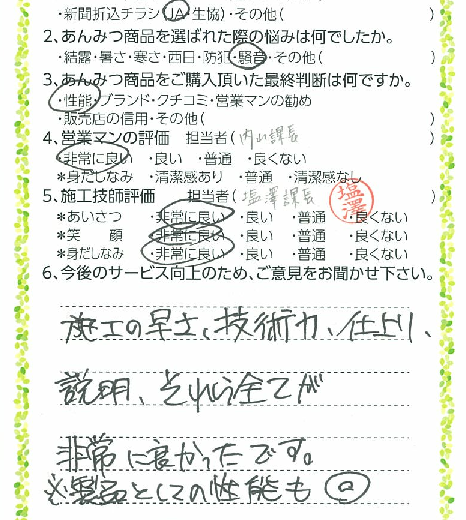 ・新聞折込チラシ・JA・生協)・その他( )
2、あんみつ商品を選ばれた際の悩みは何でしたか。
・結露・暑さ・寒さ・西日・防犯・騒音・その他( )
3、あんみつ商品をご購入頂いた最終判断は何ですか。
・性能・ブランド・クチコミ・営業マンの勧め
・販売店の信用・その他( )
4、営業マンの評価 担当者(内山課長 )
・非常に良い ・良い ・普通 ・良くない
*身だしなみ ・清潔感あり ・普通 ・清潔感なし
5、施工技師評価 担当者(塩澤課長 塩澤 )
*あいさつ ・非常に良い ・良い ・普通 ・良くない
*笑 顔 ・非常に良い ・良い ・普通 ・良くない
*身だしなみ ・非常に良い ・良い ・普通 ・良くない
6、今後のサービス向上のため、ご意見をお聞かせ下さい。
施工の早さ、技術力、仕上り、
説明、それら全てが
非常に良かったです。
※製品としての性能も◎